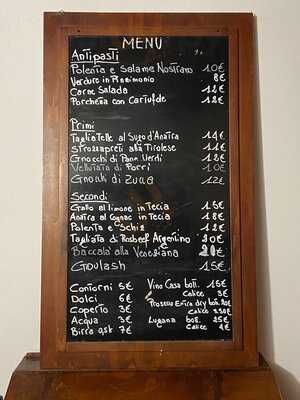 MENU
Antipasti
Polenta e Salame Nostrano 10€
Verdure in Pinzimonio 8€
Carne Salada 12€
Porchetta con 12€
Primi
Tagliatelle al Sugo d'Anatra 14€
Strozzapreti alla Tirolese 11€
Gnocchi di Pane Verdi 12€
Vellutata di Porri 10€
Gnocchi di Zucca 12€
Secondi
Gallo al limone in Tecia 15€
Anatra al Cognac in Tecia 18€
Polenta e Schiz 12€
Tagliata di Rosbeef Argentino 20€
Baccala' alla Veneziana 20€
Goulash 15€
Contorni 5€
Dolci 6€
Coperto 3€
Acqua 3€
Birra 7€
Vino Casa bott. 15€
Calice 3€
Prosecco Extra dry bott. 20€
Calice
Lugana bott. 25€
Calice 4€